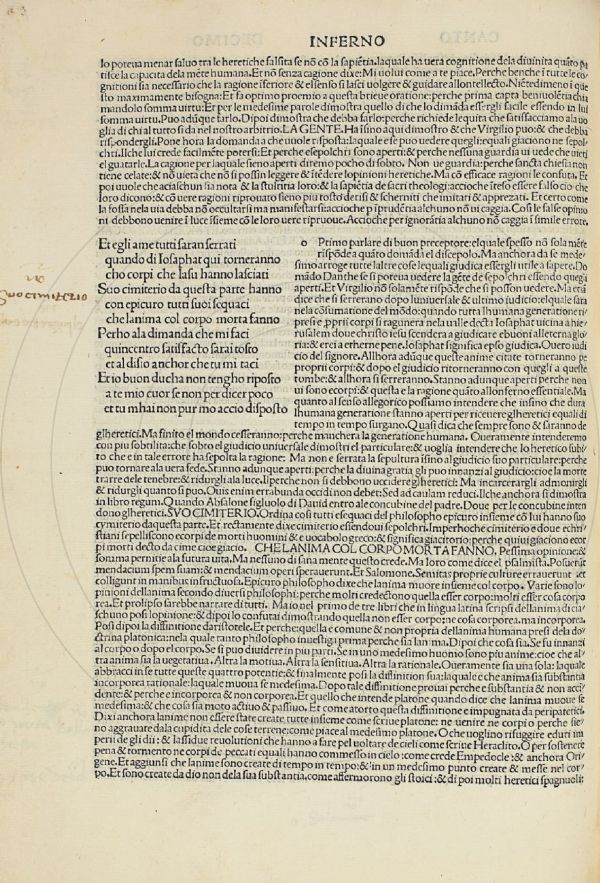 INFERNO
lo poteua menar saluo tra le heretiche falsita se nõ cõ la sapiẽtia, laquale ha uera cognitione dela diuinita quãto pa
tisce la capacita dela mẽte humana. Et nõ senza cagione dixe: Mi uolui come a te piace. Perche benche ĩ tutte le co
gnitioni sia necessario che la ragione inferiore & el senso si lasci uolgere & guidare allontellecto. Niẽtedimeno ĩ que
sto maximamente bisogna: Et fa optimo proemio a questa brieue oratione: perche prima capta beniuolẽtia chia
mandolo somma uirtu: Et per le medesime parole dimostra quello di che lo dimãda essergli facile essendo in lui
somma uirtu. Puo adũque farlo. Dipoi dimostra che debba farlo: perche richiede lequita che satisfacciamo ala uo
glia di chi al tutto si da nel nostro arbitrio. LA GENTE. Ha isino aqui dimostro & che Virgilio puo: & che debba
rispondergli. Pone hora la domanda a che uuole risposta: laquale e se puo uedere quegli: equali giacono ne sepol
chri. Ilche lui crede facilmẽte potersi: Et perche esepolchri sono aperti: & perche nessuna guardia ui uede che uieti
el guatarle. La cagione per laquale sieno aperti diremo pocho di sobto. Non ue guardia: perche sancta chiesa non
tiene celate: & nõ uieta che nõ si possin leggere & ĩtẽdere lopinioni heretiche. Ma cõ efficace ragioni le confuta. Et
poi uuole che aciaschun sia nota & la stultitia loro: & la sapiẽtia de sacri theologi: accioche ĩteso essere falso cio che
loro dicono: & cõ uere ragioni riprouato sieno piu tosto derisi & scherniti che imitati & apprezati. Et certo come
la fossa nela uia debba nõ occultarsi ma manifestarsi: accioche p ĩprudẽtia alchuno nõ ui caggia. Cosi le false opino
ni debbono uenire ĩ luce ĩssieme cõ le loro uere ripruoue. Accioche per ignorãtia alchuno nõ caggia ĩ simile errore.
Et egli a me tutti saran serrati
quando di Iosaphat qui torneranno
cho corpi che lasu hanno lasciati
Suo cimiterio da questa parte hanno
con epicuro tutti suoi sequaci
che lanima col corpo morta fanno
Perho ala dimanda che mi faci
quincentro satisfacto sarai tosto
et al disio anchor che tu mi taci
Et io buon ducha non tengho riposto
a te mio cuor se non per dicer poco
et tu mhai non pur mo accio disposto
suo cimiterio
o Primo parlare di buon preceptore: elquale spesso nõ sola mẽte
rispõde a quato domãda el discepolo. Ma anchora da se mede
simo arroge tutte laltre cose lequali giudica essergli utile a sapere. Do
mãdo Danthe se si poteua uedere la gẽte de sepolchri essendo quegli
aperti. Et Virgilio nõ solamẽte rispõde che si posson uedere. Ma etiã
dice che si serreranno dopo luniuersale & ultimo iudicio: elquale sara
nela cosumatione del mõdo: quando tutta lhumana generatione ri
presi e pprii corpi si ragunera nela ualle decta Iosaphat uicina a hie
rusalem doue christo iesu scendera a giudicare e buoni alleterna glo
ria: & erei a etherne pene. Iosaphat significa epso giudicio. Ouero iudi
cio del signore. Allhora adũque queste anime citate torneranno pe
proprii corpi: & dopo el giudicio ritorneranno con quegli a queste
tombe: & allhora si serreranno. Stanno adunque aperti perche non
ui sono ecorpi: & questa e la ragione quãto allonferno essentiale. Ma
quanto al senso allegorico possiamo intendere che insino che dura
lhumana generatione stanno aperti per riceuere glheretici equali di
tempo in tempo surgano. Quasi dica che sempre sono & saranno de
glheretici. Ma finito el mondo cesseranno: perche manchera la generatione humana. Oueramente intenderemo
con piu sobtilita: che sobto el giudicio uniuersale dimostri el particulare: & uoglia intendere che lo heretico subi
to che e in tale errore ha sepolta la ragione: Ma non e serrata la sepultura ĩsino al giudicio suo particulare: perche
puo tornare ala uera sede. Stanno adunque aperti: perche la diuina gratia gli puo innanzi al giudicio: cioe la morte
trarre dele tenebre: & ridurgli ala luce. Il perche non si debbono uccidere glheretici: Ma incarcerargli admonirgli
& ridurgli quanto si puo. Ouis enim errabunda occidi non debet: Sed ad caulam reduci. Ilche anchora si dimostra
in libro regum. Quando Absalone figluolo di Dauid entro ale concubine del padre. Doue per le concubine inten
dono glheretici. SVO CIMITERIO. Ordina cosi tutti esequaci del philosopho epicuro insieme cõ lui hanno suo
cymiterio da questa parte. Et rectamente dixe cimiterio essendoui sepolchri. Imperhoche cimiterio e doue echri
stiani sepelliscono ecorpi de morti huomini & e uocabolo greco: & significa giacitorio: perche quiui giacciono ecor
pi morti decto da cime cioe giacio. CHE LANIMA COL CORPO MORTA FANNO. Pessima opinione: &
somma pernitie ala futura uita. Ma nessuno di sana mente questo crede. Ma loro come dice el psalmista. Posuerũt
mendacium spem suam: & mendacium operi sperauerunt. Et Salomone. Semitas proprie culture errauerunt &
colligunt in manibus infructuosa. Epicuro philosopho dixe che lanima muore insieme col corpo. Varie sono lo
pinioni dellanima secondo diuersi philosophi: perche molti credectono quella esser corpo: molti esser cosa corpo
rea. Et prolipso sarebbe narrare di tutti. Ma io nel primo de tre libri che in lingua latina scripsi dellanima dicia
schuno posi lopinione: & dipoi lo confutai dimostrando quella non esser corpo: ne cosa corporea, ma incorporea.
Posi dipoi la diffinitione daristotele. Et perche: quella e comune & non propria dellanima humana presi dela do
ctrina platonica: nela quale tanto philosopho inuestiga prima perche sia lanima. Dipoi che cosa sia. Se fu innanzi
al corpo o dopo el corpo. Se si puo diuidere in piu parti. Se in uno medesimo huomo sono piu anime: cioe che al
tra anima sia la uegetatiua. Altra la motiua. Altra la sensitiua. Altra la rationale. Oueramente sia una sola: laquale
abbiacci in se tutte queste quatro potentie: & finalmente posi la diffinition sua: laquale e che anima sia substantia
incorporea rationale: laquale muoua se medesima. Dopo tale diffinitione prouai perche e substantia & non acci
dente: & perche e incorporea & non corporea. Et quello che intende platone quando dice che lanima muoue se
medesima: & che cosa sia moto actiuo & passiuo. Et come atorto questa diffinitione e impugnata da peripatetici.
Dixi anchora lanime non essere state create tutte insieme come scriue platone: ne uenire ne corpi o perche sie
no aggrauate dala cupidita dele cose terrene: come piace al medesimo platone. O che uoglino rifuggire eduri im
perii de gli dii: & lassidue reuolutioni che hanno a fare pel uoltare de cieli come scriue Heraclito. O per sostenere
pena & tormento ne corpi de peccati equali hanno commesso in cielo: come crede Empedocle: & anchora Ori
gene. Et aggiunsi che lanime sono create di tempo in tempo: & in un medesimo punto create & messe nel cor
po. Et sono create da dio non dela sua substantia, come affermorono gli stoici: & di poi molti heretici spagnuoli: